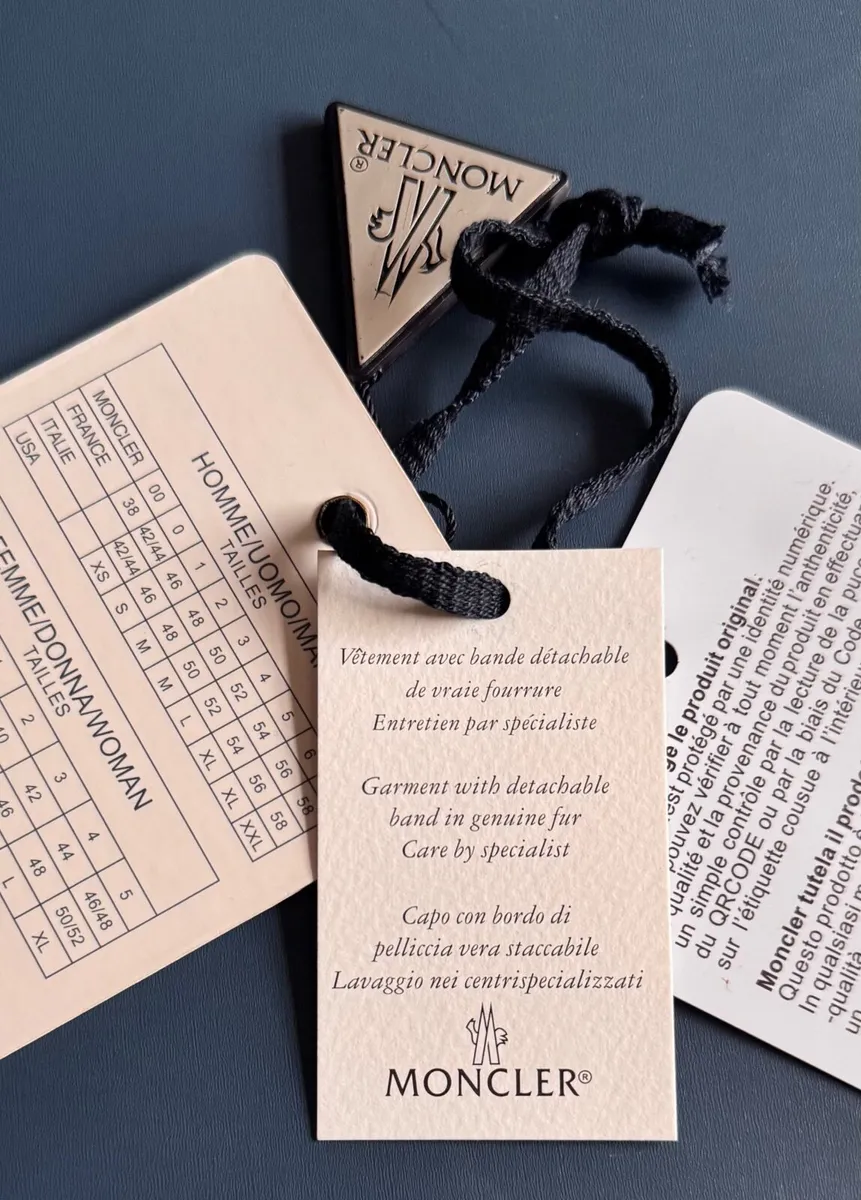 MONCLER®
HOMME/UOMO/MA
TAILLES
MONCLER 00 0 1 2 3 4 5 6
FRANCE 38 42/44 46 48 50 52 54 56 58
ITALIE 42/44 46 48 50 52 54 56 58
USA XS S M M L XL XL XXL
FEMME/DONNA/WOMAN
TAILLES
2 3 4 5
42 44 46/48
46 48 50/52
L XL
Vêtement avec bande détachable
de vraie fourrure
Entretien par spécialiste
Garment with detachable
band in genuine fur
Care by specialist
Capo con bordo di
pelliccia vera staccabile
Lavaggio nei centrispecializzati
MONCLER®
ge le produit original:
est protégé par une identité numérique.
pouvez vérifier à tout moment l'authenticité,
qualité et la provenance du produit en effectua
un simple contrôle par la lecture de la puce
du QRCODE ou par le biais du Code
sur l'étiquette cousue à l'intérieu
Moncler tutela il prod
Questo prodotto è
In qualsiasi m
-qualità
un